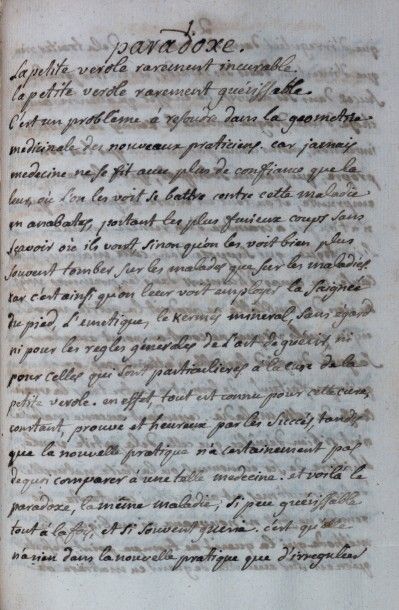 1.
paradoxe.
La petite verole rarement incurable.
la petite verole rarement guérissable.
C'est un probleme à resoudre dans la geometrie
medicinale des nouveaux praticiens. car jamais
medecine ne se fit avec plus de confiance que la
leur, où l'on les voit se battre contre cette maladie
en anabates, portant les plus furieux coups sans
sçavoir où ils vont, sinon qu'on les voit bien plus
souvent tomber sur les malades que sur les maladies.
car c'est ainsi qu'on leur voit employer la saignée
du pied, L'emetique, le Kermés mineral, sans égard
ni pour les regles génerales de l'art de guérir, ni
pour celles qui sont particulieres à la cure de la
petite verole. en effet, tout est connu pour cette cure,
constant, prouvé et heureux par les succés, tandis
que la nouvelle pratique n'a certainement pas
de quoi comparer à une telle medecine: et voilà le
paradoxe, la même maladie, si peu guérissable
tout à la fois, et si souvent guérie. c'est qu'elle
n'a rien dans la nouvelle pratique que d'irregulier